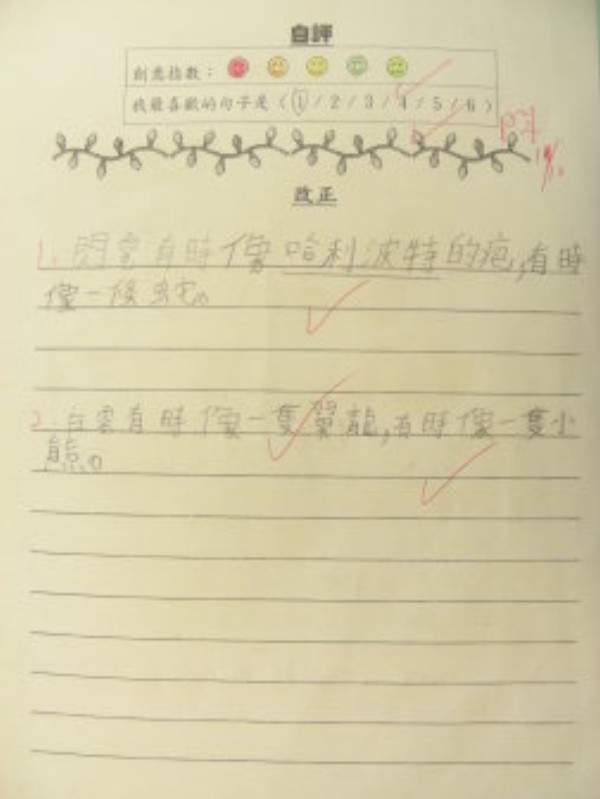 自評
創意指數：
我最喜歡的句子是（1/2/3/4/5/6）
改正
1. 閃電有時像哈利波特的疤,有時
像一條蛇。
2. 白雲有時像一隻翼龍,有時像一隻小
熊。